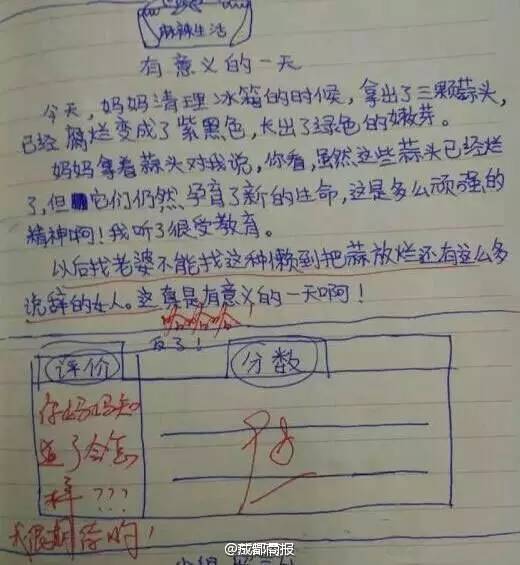 麻辣生活
有意义的一天
今天，妈妈清理冰箱的时候，拿出了三颗蒜头，
已经腐烂变成了紫黑色，长出了绿色的嫩芽。
妈妈拿着蒜头对我说，你看，虽然这些蒜头已经烂
了，但它们仍然孕育了新的生命，这是多么顽强的
精神啊！我听了很受教育。
以后找老婆不能找这种懒到把蒜放烂还有这么多
说辞的女人。这真是有意义的一天啊！
哈哈哈
评价
分数
你妈妈知
道了会怎
样???
我很期待哟！
@成都商报